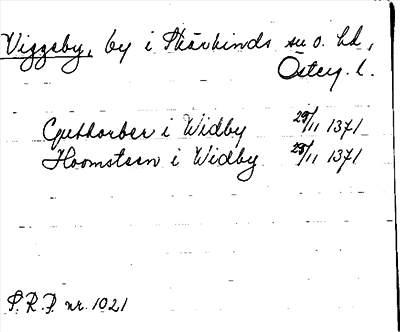 Viggeby, by i Skärkinds sn o. hd,
Österg. l.
Guthorber i Widby 29/11 1371
Hoomsteen i Widby 29/11 1371
S.R.P. nr. 1021